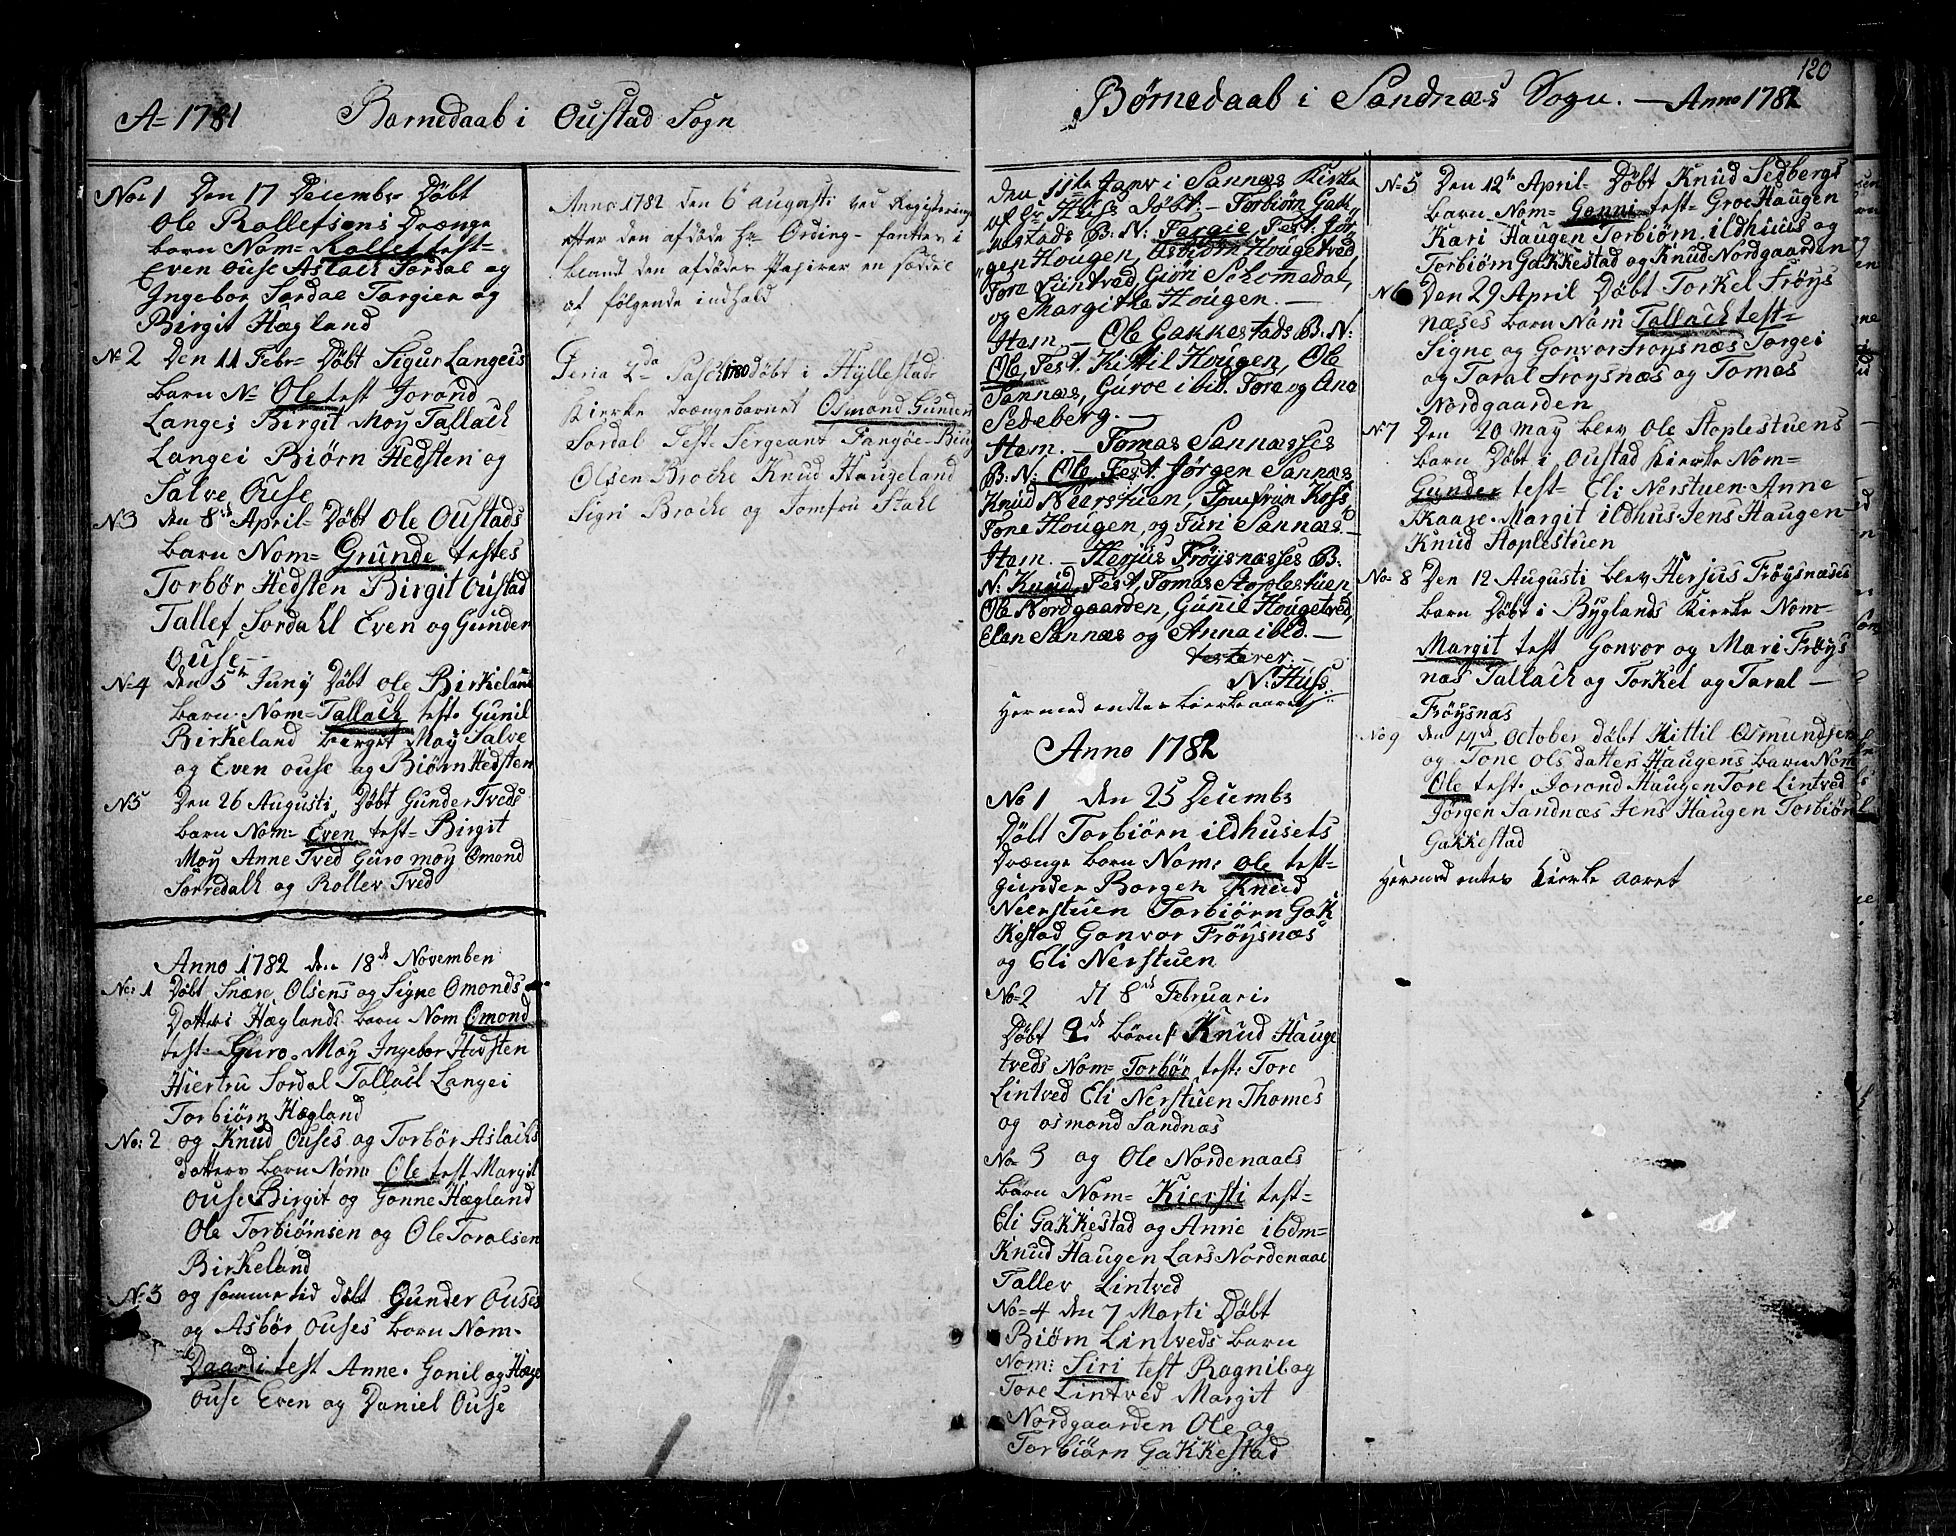 A= 1781 Barnedaab i Oustad Sogn
No: 1 Den 17 Decembr Døbt
Ole Rollefsens Drænge
barn Nom= Rollef test=
Even Ouse Aslach Sordal og
Ingebor Sordal Targier og
Birgit Hægland
No 2 Den 11 Febr= Døbt Sigur Langeis
Barn N= Ole test Jorond
Langei Birgit Moy Tallach
Langei Biørn Hedsten og
Salve Ouse
N3 den 8de April= Døbt Ole Oustads
Barn Nom= Grunde testes
Torbør Hedsten Birgit Oustad
Tallef Sordahl Even og Gunder
Ouse
N=4 den 5te Junij Døbt Ole Birkeland
Barn Nom= Tallach test. Gunil
Birkeland Birget Moy Salve
og Even Ouse og Biørn Hedsten
N5 Den 26 Augusti, Døbt Gunder Tveds
Barn Nom= Even test= Birgit
Moy Anne Tved Guro moy Omond
Sorredalh og Rollev Tved
Anno 1782 den 18de November
No: 1 Døbt Snære Olsens og Signe Omonds
Datters Hæglands barn Nom Omond
test= Guro Moy Ingebor Hedsten
Hiertru Sordal Tallach Langei
Torbiørn Hægland
No: 2 og Knud Ouses og Torbør Aslachs
datters barn Nom: Ole test Margit
Ouse Birgit og Gonne Hægland
Ole Torbiørnsen og Ole Toralsen
Birkeland
N:3 og samme tid døbt Gunder Ouses
og Asbør Ouses Barn Nom=
Daardi test Anne. Gonil og Hæge
Ouse Even og Daniel Ouse
Anno 1782 den 6 augusti ved Registering
efter den afdøde Hr Ording- fantes i
blandt den afdødes Papirer en seddel
af følgende indhald
Feria 2da Pasch: 1780 Døbt i Hyllestad
Kierke drængebarnet Osmond Gunders
Sordal Test. Sergeant Fangøe Biug
Olsen Brocke Knud Haugeland
Sigri Brocke og Jomfru Stahl
120
Børnedaab i Sandnæs Sogn. — Anno 1782
den 11te Janv i Sannæs Kirke
af Hr. Huss Døbt. — Torbiørn Gak-
kestads B: N: Targie, Test. Jør-
gen Hougen, Osbiørn Hougetved,
Tore Lintved, Giøri Schomedal,
og Margithe Hougen. —
Item. — Ole Gakkestads B: N:
Ole, Test. Kittil Hougen, Ole
Sannæs, Guroe ibid. Tore og Ana
Sedeberg. —
Item. — Tomas Sannæsses
B: N: Ole, Test. Jørgen Sannæs,
Knud Neerstuen, Jomfru Koss
Tone Hougen, og Turi Sannæs. —
Item. — Herjus Frøysnæsses B:
N: Knud, Test, Tomas Stoplestuen,
Ole Nordgaarden, Gunnil Hougetved,
Elen Sannæs og Anna ibid. —
testerer. —
N: Huss.
Hermed endtes kierkeaaret
Anno 1782
No 1 den 25 Decembr
Døbt Torbiørn ildhusets
Drænge barn Nom: Ole test=
Gunder Borgen Knud
Neerstuen Torbiørn Gak
Kestad Gonvor Frøysnæs
og Eli Nerstuen
No=2 d 8de Februari.
Døbt 2de børn/: Knud Hauge
tveds Nom= Torbør test: Tore
Lintved Eli Nerstuen Thomes
og osmond Sandnæs
No= 3 og Ole Nordenaaes
Barn Nom= Kiersti test=
Eli Gakkestad og Anne ibdm=
Knud Haugen Lars Nordenaae
Tallev Lintved
No=4 den 7 Marti Døbt
Biørn Lintveds Barn
Nom: Siri test Ragnil og
Tore Lintved Margit
Nordgaarden Ole og
Torbiørn Gakkestad
N=5 Den 12te April= Døbt Knud Sedbergs
Barn Nom= Gonni test= Groe Haugen
Kari Haugen Torbiørn ildhuus og
Torbiørn Gakkestad og Knud Nordgaarden
N6 Den 29 April Døbt Torkel Frøys
næses barn Nom Tallach test=
Signe og Gonvor Froysnæs Torgei
og Taral Froysnæs og Tomes
Nordgaarden
N7 Den 20 May blev Ole Stoplestuens
Barn Døbt i Oustad Kierke Nom=
Gunder test= Eli Nerstuen Anne
Skaare Margit ildhus Jens Haugen
Knud Stoplestuen
No= 8 Den 12 Augusti blev Herjus Frøysnæses
barn Døbt i Byglands Kierke Nom=
Margit test Gonvor og Mari Frøys
næs Tallach og Torkel og Taral —
Frøysnæs
No 9 den 14de October døbt Kittil Osmundsen
og Tone Ols datters Haugens barn Nom
Ole test. Jorond Haugen Tore Lintved
Jørgen Sandnæs Jens Haugen Torbiørn
Gakkestad
Hermed entes Kierke aaret